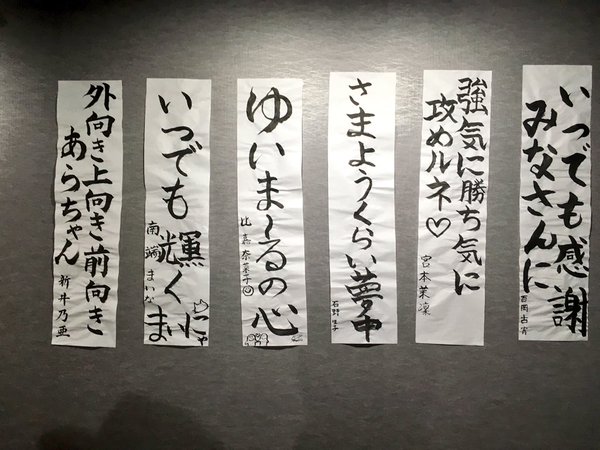 いつでも感謝
みなさんに
強気に勝ち気に
攻めルネ♡
宮本茉凜
さまようくらい夢中
石野理子
ゆいま〜るの心
比嘉奈菜子
いつでも輝く
南端まいな
外向き上向き前向き
あらちゃん
新井乃亜